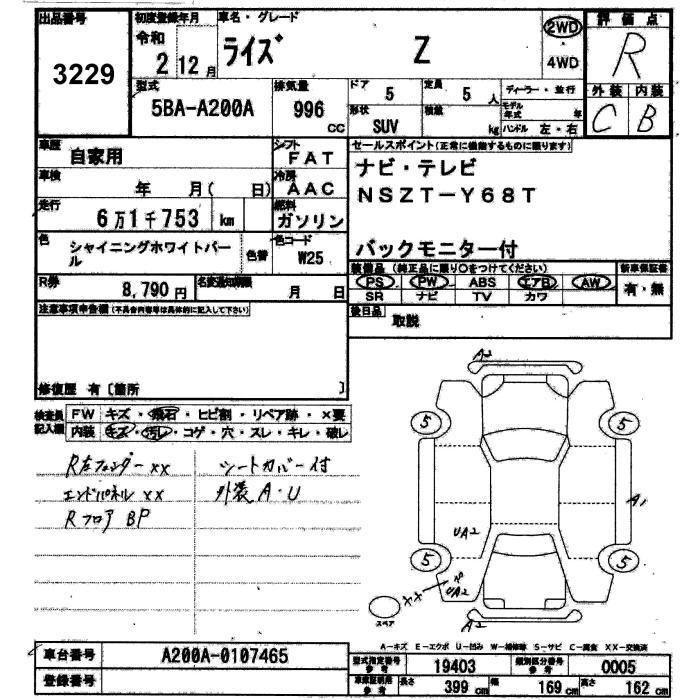 出品番号 3229
初度登録年月 令和 2 12月
車名・グレード ライズ Z
2WD・4WD
評価点 R
外装 C 内装 B
型式 5BA-A200A
排気量 996 cc
ドア 5
定員 5 人
形状 SUV
積数 kg
ディーラー・並行
モデル年式 年
ハンドル 左・右
車歴 自家用
シフト FAT
車検 年 月( 日)
冷房 AAC
走行 6万1千753 km
燃料 ガソリン
色 シャイニングホワイトパール
色替
色コード W25
R券 8,790 円
名変通知期限 月 日
セールスポイント(正常に機能するものに限ります)
ナビ・テレビ
NSZT-Y68T
バックモニター付
装備品 (純正品に限り○をつけてください)
新車保証書 有・無
PS PW ABS エアB AW
SR ナビ TV カワ
後日品 取説
注意事項申告欄(不具合内容等は具体的に記入して下さい)
修復歴 有 〔箇所 〕
検査員記入欄
FW キズ・飛石・ヒビ割・リペア跡・×要
内装 キズ・汚レ・コゲ・穴・スレ・キレ・破レ
R左フェンダー××
エンドパネル××
Rフロア BP
シートカバー付
外装 A・U
A2
5
5
A1
UA2
5
5
UA2
スペア
A2
A-キズ E-エクボ U-凹み W-補修跡 S-サビ C-腐食 XX-交換済
車台番号 A200A-0107465
登録番号
型式指定番号 参考 19403
類別区分番号 参考 0005
車庫証明用 参考 長さ 399 cm 幅 169 cm 高さ 162 cm